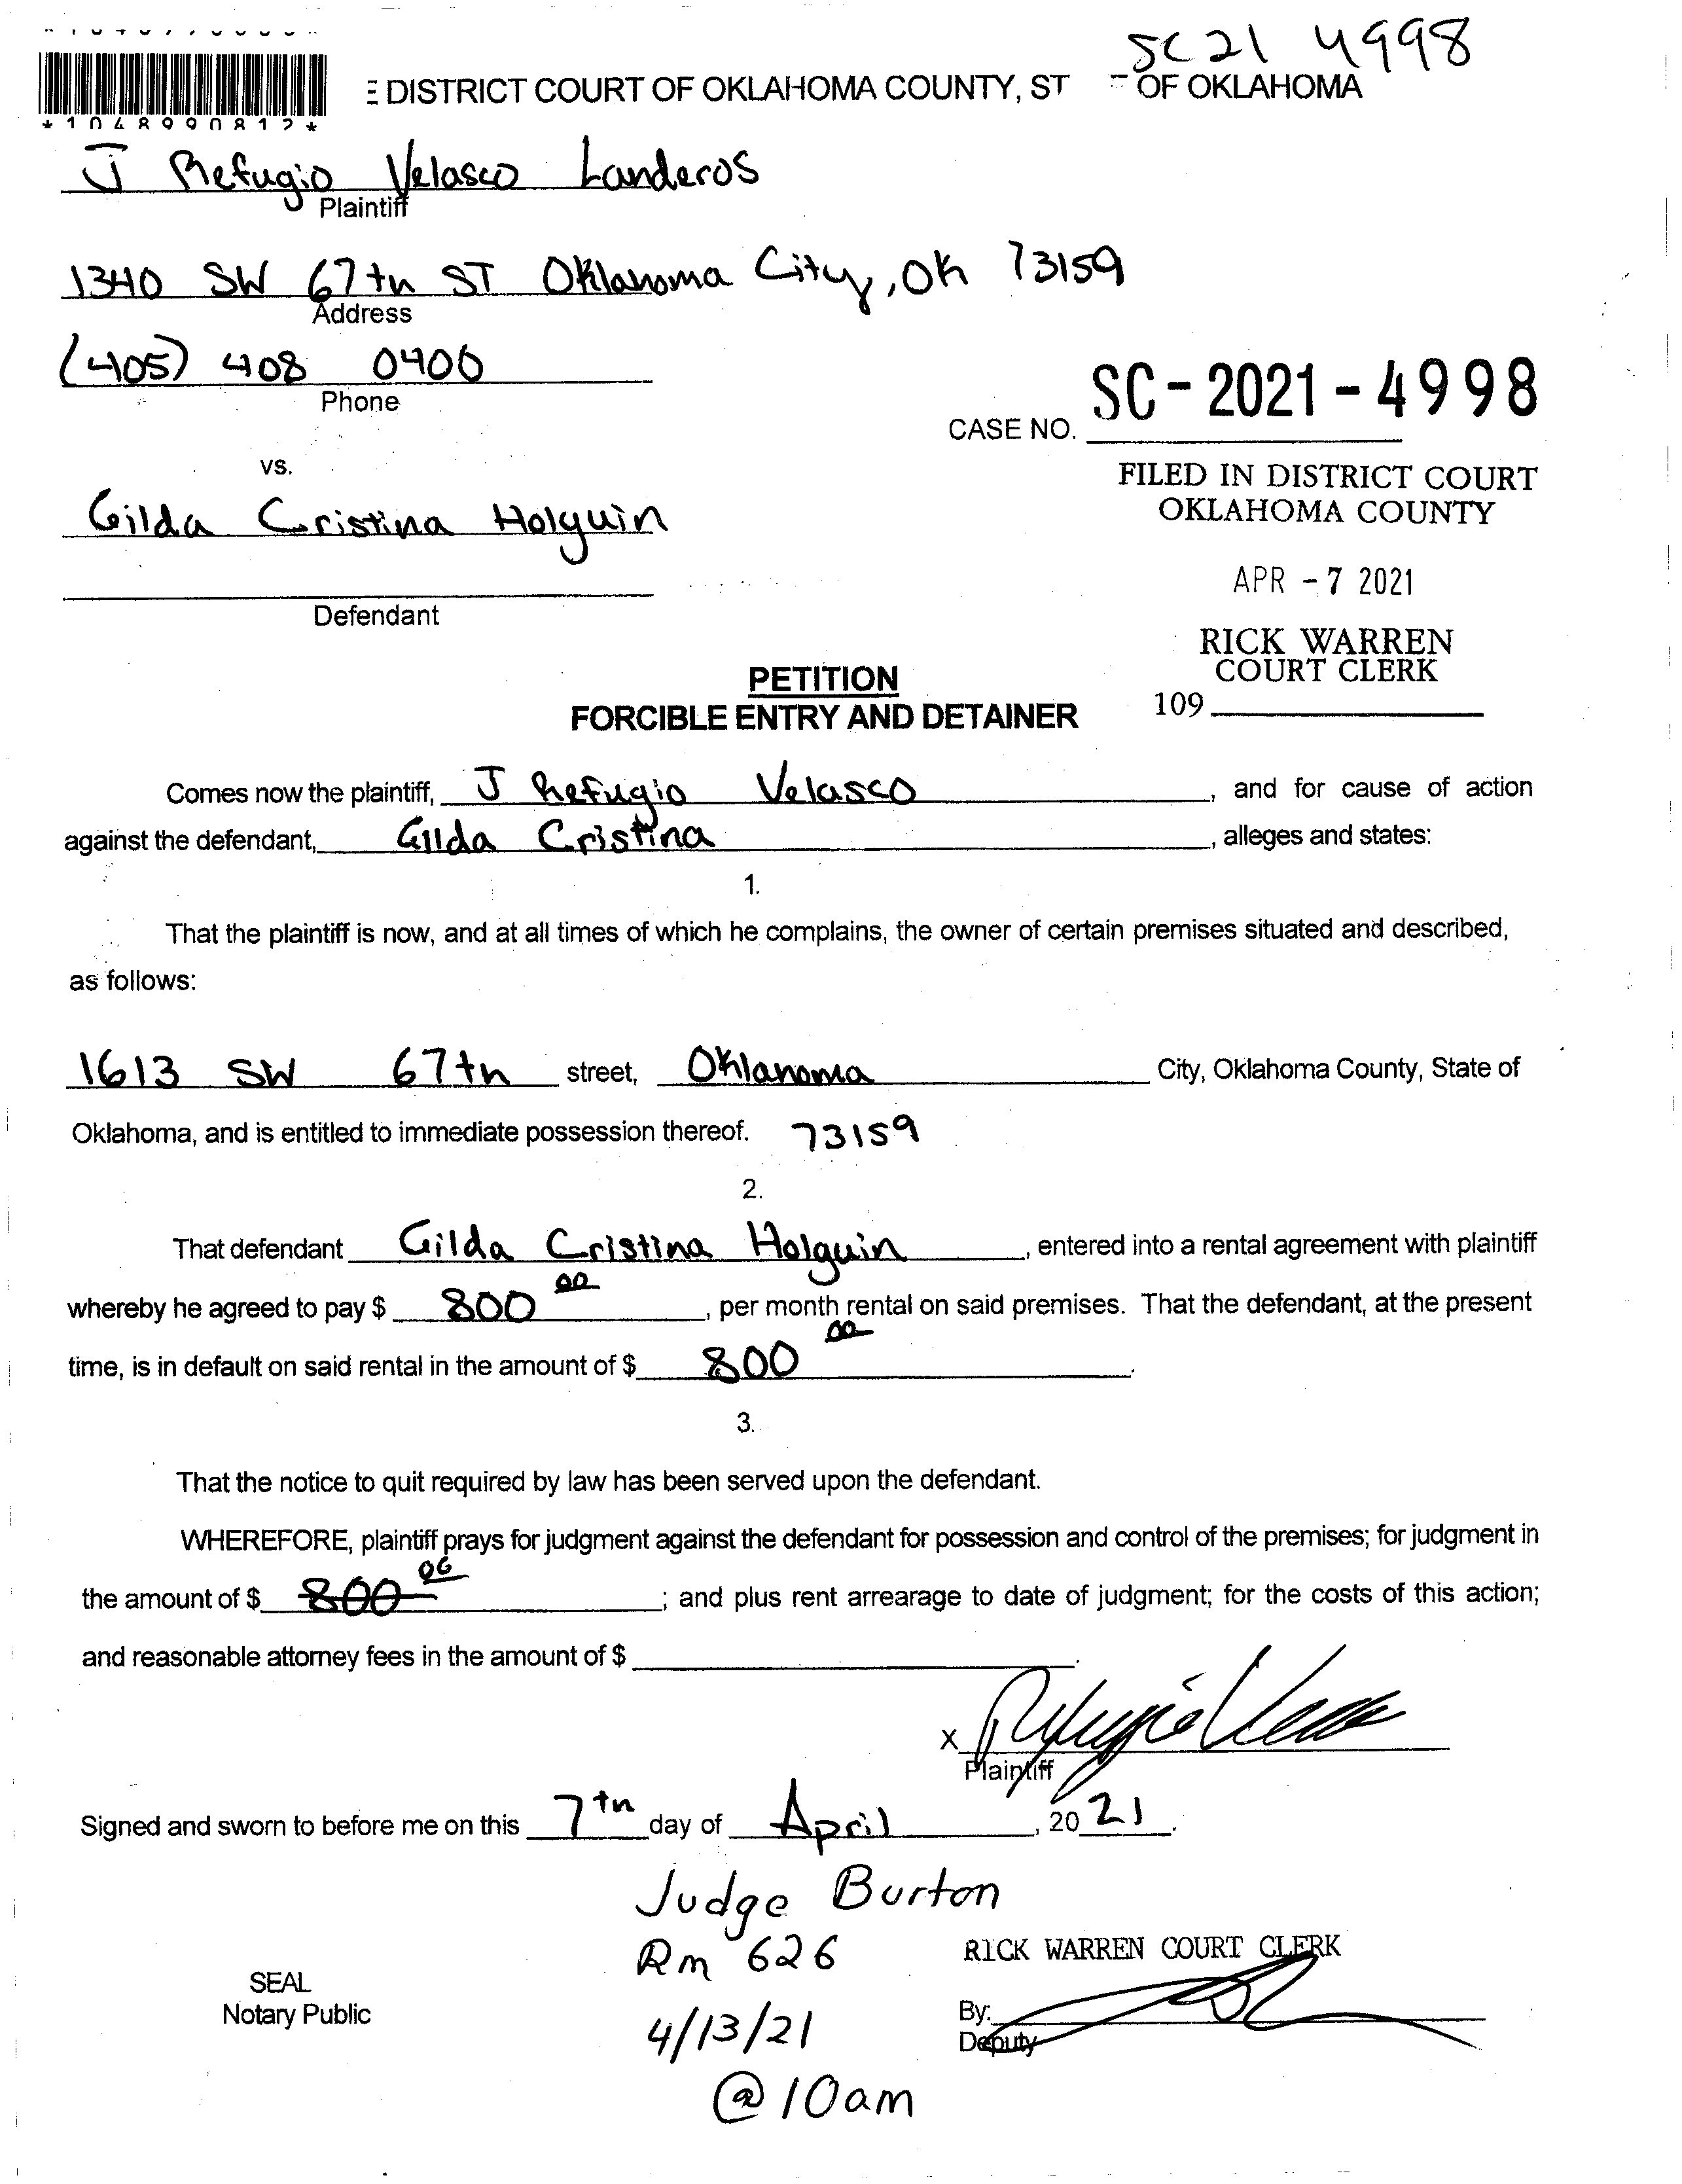 SC21 4998
E DISTRICT COURT OF OKLAHOMA COUNTY, ST OF OKLAHOMA
*1048990812*
J Refugio Velasco Landeros
Plaintiff
1340 SW 67th ST Oklahoma City, OK 73159
Address
(405) 408 0400
Phone
CASE NO. SC-2021-4998
vs.
FILED IN DISTRICT COURT
OKLAHOMA COUNTY
Gilda Cristina Holguin
APR -7 2021
Defendant
RICK WARREN
COURT CLERK
109
PETITION
FORCIBLE ENTRY AND DETAINER
Comes now the plaintiff, J Refugio Velasco, and for cause of action
against the defendant, Gilda Cristina, alleges and states:
1.
That the plaintiff is now, and at all times of which he complains, the owner of certain premises situated and described,
as follows:
1613 SW 67th street, Oklahoma City, Oklahoma County, State of
Oklahoma, and is entitled to immediate possession thereof. 73159
2.
That defendant Gilda Cristina Holguin, entered into a rental agreement with plaintiff
whereby he agreed to pay $ 800 00, per month rental on said premises. That the defendant, at the present
time, is in default on said rental in the amount of $ 800 00.
3.
That the notice to quit required by law has been served upon the defendant.
WHEREFORE, plaintiff prays for judgment against the defendant for possession and control of the premises; for judgment in
the amount of $ 800 00; and plus rent arrearage to date of judgment; for the costs of this action;
and reasonable attorney fees in the amount of $.
X Refugio Velasco
Plaintiff
Signed and sworn to before me on this 7th day of April, 2021.
Judge Burton
Rm 626
4/13/21
@10am
RICK WARREN COURT CLERK
SEAL
Notary Public
By:
Deputy